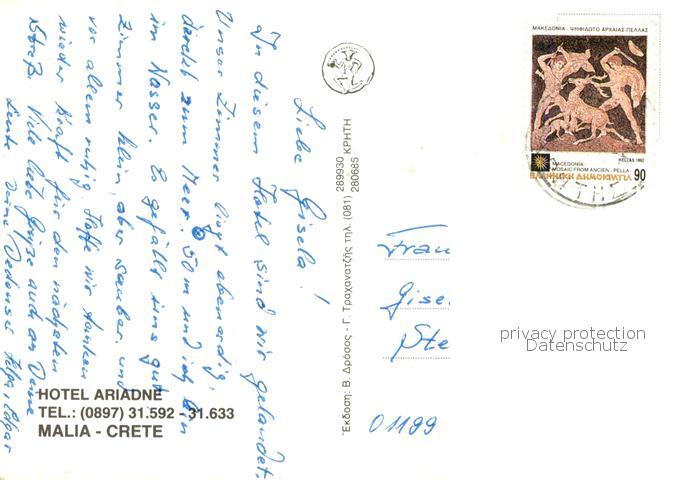 Liebe Gisela!
In diesem Hotel sind wir gelandet.
Unser Zimmer liegt ebenerdig,
direkt zum Meer. 50 m und ich bin
im Wasser. Es gefällt uns gut
Zimmer klein, aber sauber, und
vor allem ruhig. Hoffe wir tanken
wieder Kraft für den nächsten
Streß. Viele liebe Grüße auch an Deine
Leute Deine
HOTEL ARIADNE
TEL.: (0897) 31.592 - 31.633
MALIA - CRETE
Έκδοση: Β. Δρόσος - Γ. Τραχανατζής τηλ. (081) 289930 ΚΡΗΤΗ
280685
ΜΑΚΕΔΟΝΙΑ - ΨΗΦΙΔΩΤΟ ΑΡΧΑΙΑΣ ΠΕΛΛΑΣ
HELLAS 1992
MACEDONIA
MOSAIC FROM ANCIEN. PELLA
ΕΛΛΗΝΙΚΗ ΔΗΜΟΚΡΑΤΙΑ 90
Frau
Gise
Ste
01199
privacy protection
Datenschutz